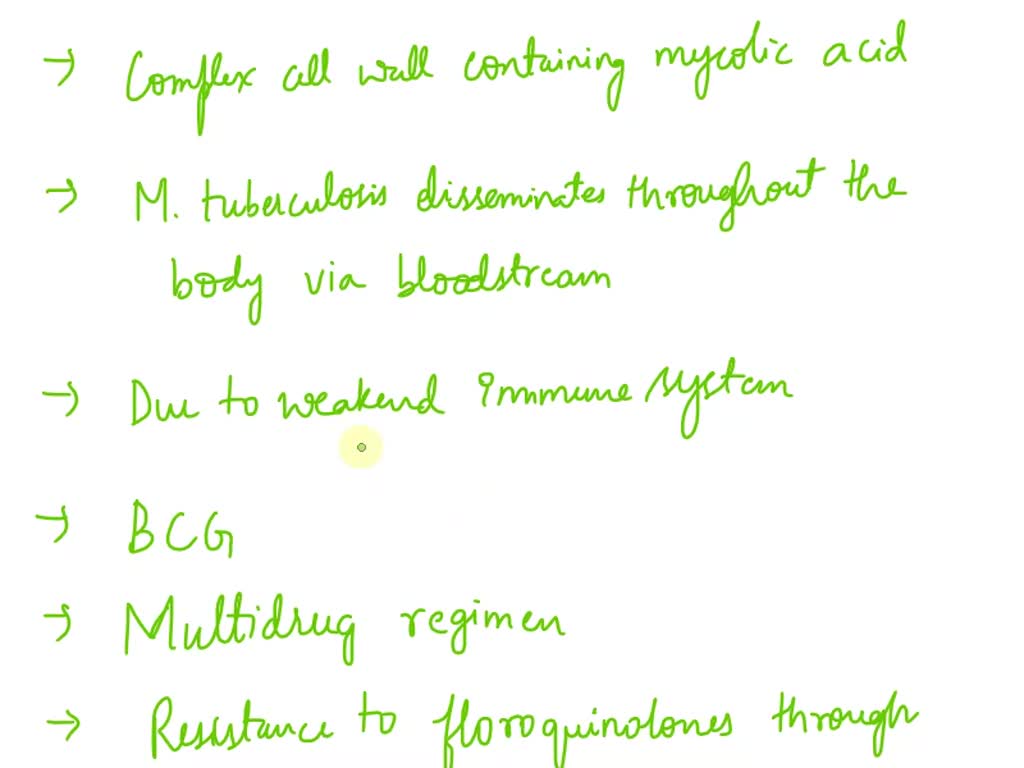 → Complex cell wall containing mycolic acid
→ M. tuberculosis disseminates throughout the
body via bloodstream
→ Due to weakend immune system
→ BCG
→ Multidrug regimen
→ Resistance to floroquinolones through